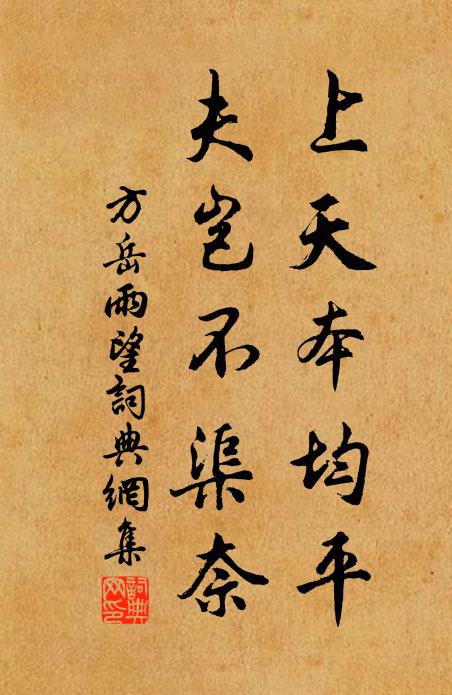 上天本均平
夫岂不渠奈
方岳雨望詞典網集
詞典網印